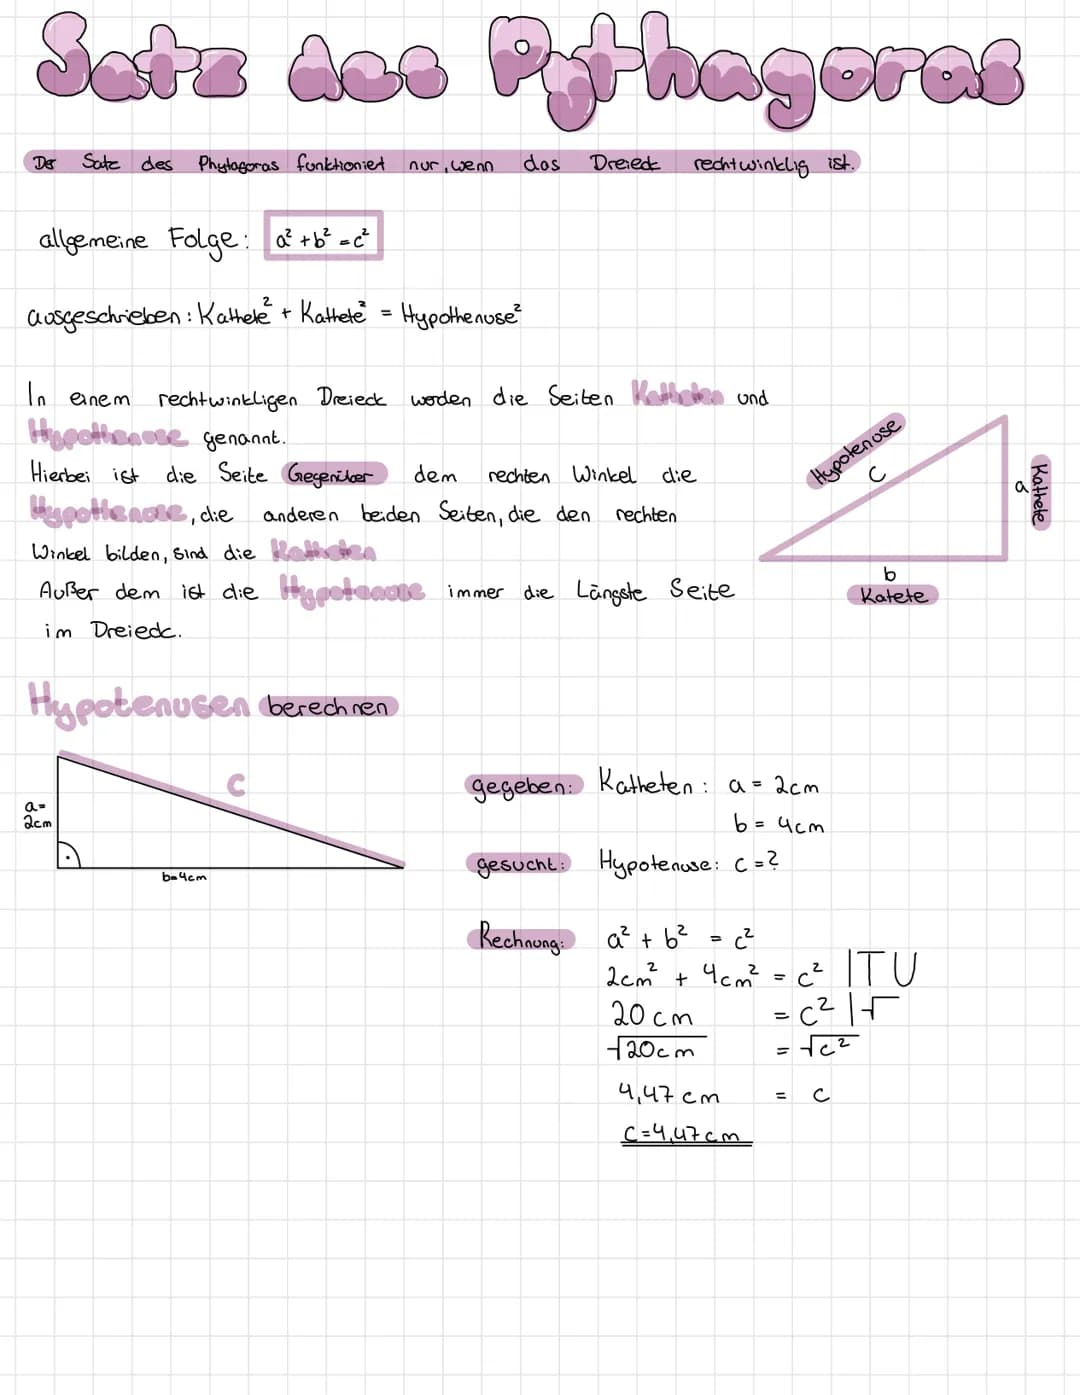 Satz des Pythagoras
Der Satz des Phytagoras funktioniert nur, wenn das Dreieck rechtwinklig ist.
allgemeine Folge: a² + b² = c²
ausgeschrieben: Kathete² + Kathete² = Hypothenuse²
In einem rechtwinkligen Dreieck werden die Seiten Katheten und
Hypothenose genannt.
Hierbei ist die Seite Gegenüber dem rechten Winkel die
Hypothenose, die anderen beiden Seiten, die den rechten
Winkel bilden, sind die Katheten
Außer dem ist die Hypotenose immer die Längste Seite
im Dreieck.
Hypotenose
c
a
Kathete
b
Katete
Hypotenusen berechnen
c
a=
2cm
b=4cm
gegeben: Katheten: a = 2cm
b = 4cm
gesucht: Hypotenuse: c = ?
Rechnung: a² + b² = c²
2cm² + 4cm² = c² |TU
20 cm = c² |√
√20cm = √c²
4,47 cm = c
c=4,47cm